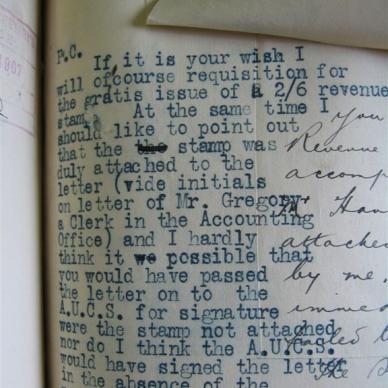 P.C.
If, it is your wish I
will ofcourse requisition for
the gratis issue of a 2/6 revenue
stam
At the same time I
should like to point out
that the the stamp was
duly attached to the
letter (vide initials
on letter of Mr. Gregory
a Clerk in the Accounting
Office) and I hardly
think it we possible that
you would have passed
the letter on to the
A.U.C.S. for signature
were the stamp not attached
nor do I think the A.U.C.S.
would have signed the letter
in the absence of the
1907
you
Revenue
accomp
attached
by me.
imme